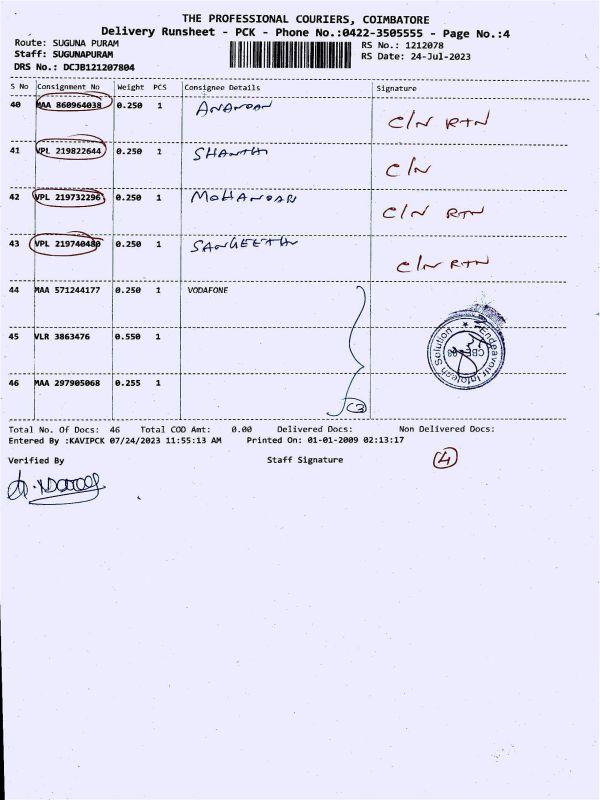 THE PROFESSIONAL COURIERS, COIMBATORE
Delivery Runsheet - PCK - Phone No.:0422-3505555 - Page No.:4
Route: SUGUNA PURAM
RS No.: 1212078
Staff: SUGUNAPURAM
RS Date: 24-Jul-2023
DRS No.: DCJB121207804
S No Consignment No Weight PCS Consignee Details Signature
40 MAA 860964038 0.250 1 ANANDAN
C/N RTN
41 VPL 219822644 0.250 1 SHANTHI
C/N
42 VPL 219732296 0.250 1 MOHANDAR
C/N RTN
43 VPL 219740480 0.250 1 SANGEETHA
C/N RTN
44 MAA 571244177 0.250 1 VODAFONE
45 VLR 3863476 0.550 1
46 MAA 297905068 0.255 1
Endeavour Infotech Solution
Total No. Of Docs: 46 Total COD Amt: 0.00 Delivered Docs: Non Delivered Docs:
Entered By :KAVIPCK 07/24/2023 11:55:13 AM Printed On: 01-01-2009 02:13:17
Verified By Staff Signature
4